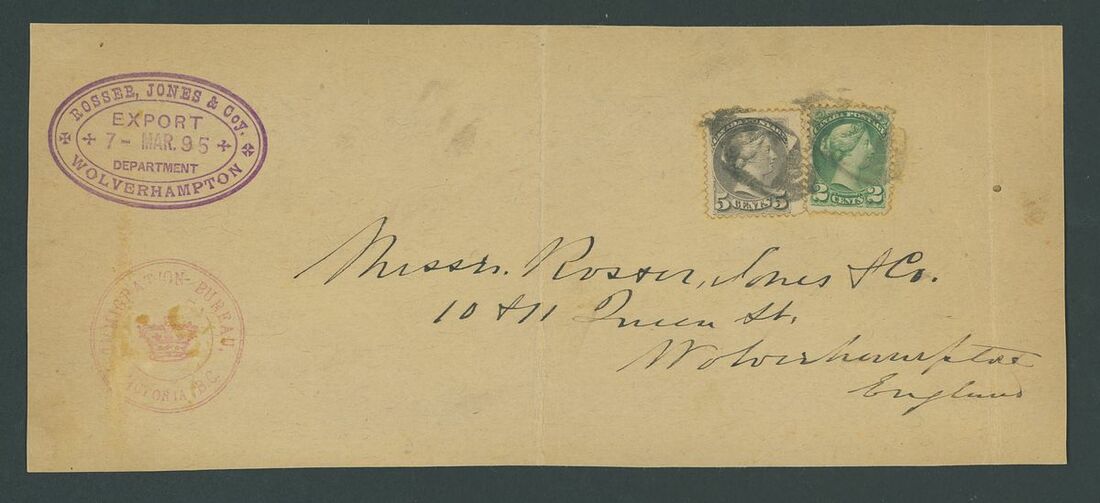 ROSSER, JONES & Coy.
EXPORT
7 - MAR. 95
DEPARTMENT
WOLVERHAMPTON
CANADA POSTAGE
5 CENTS 5
2 CENTS 2
Messrs. Rosser, Jones & Co.
10 & 11 Queen St.
Wolverhampton
England
IMMIGRATION BUREAU,
VICTORIA, B.C.